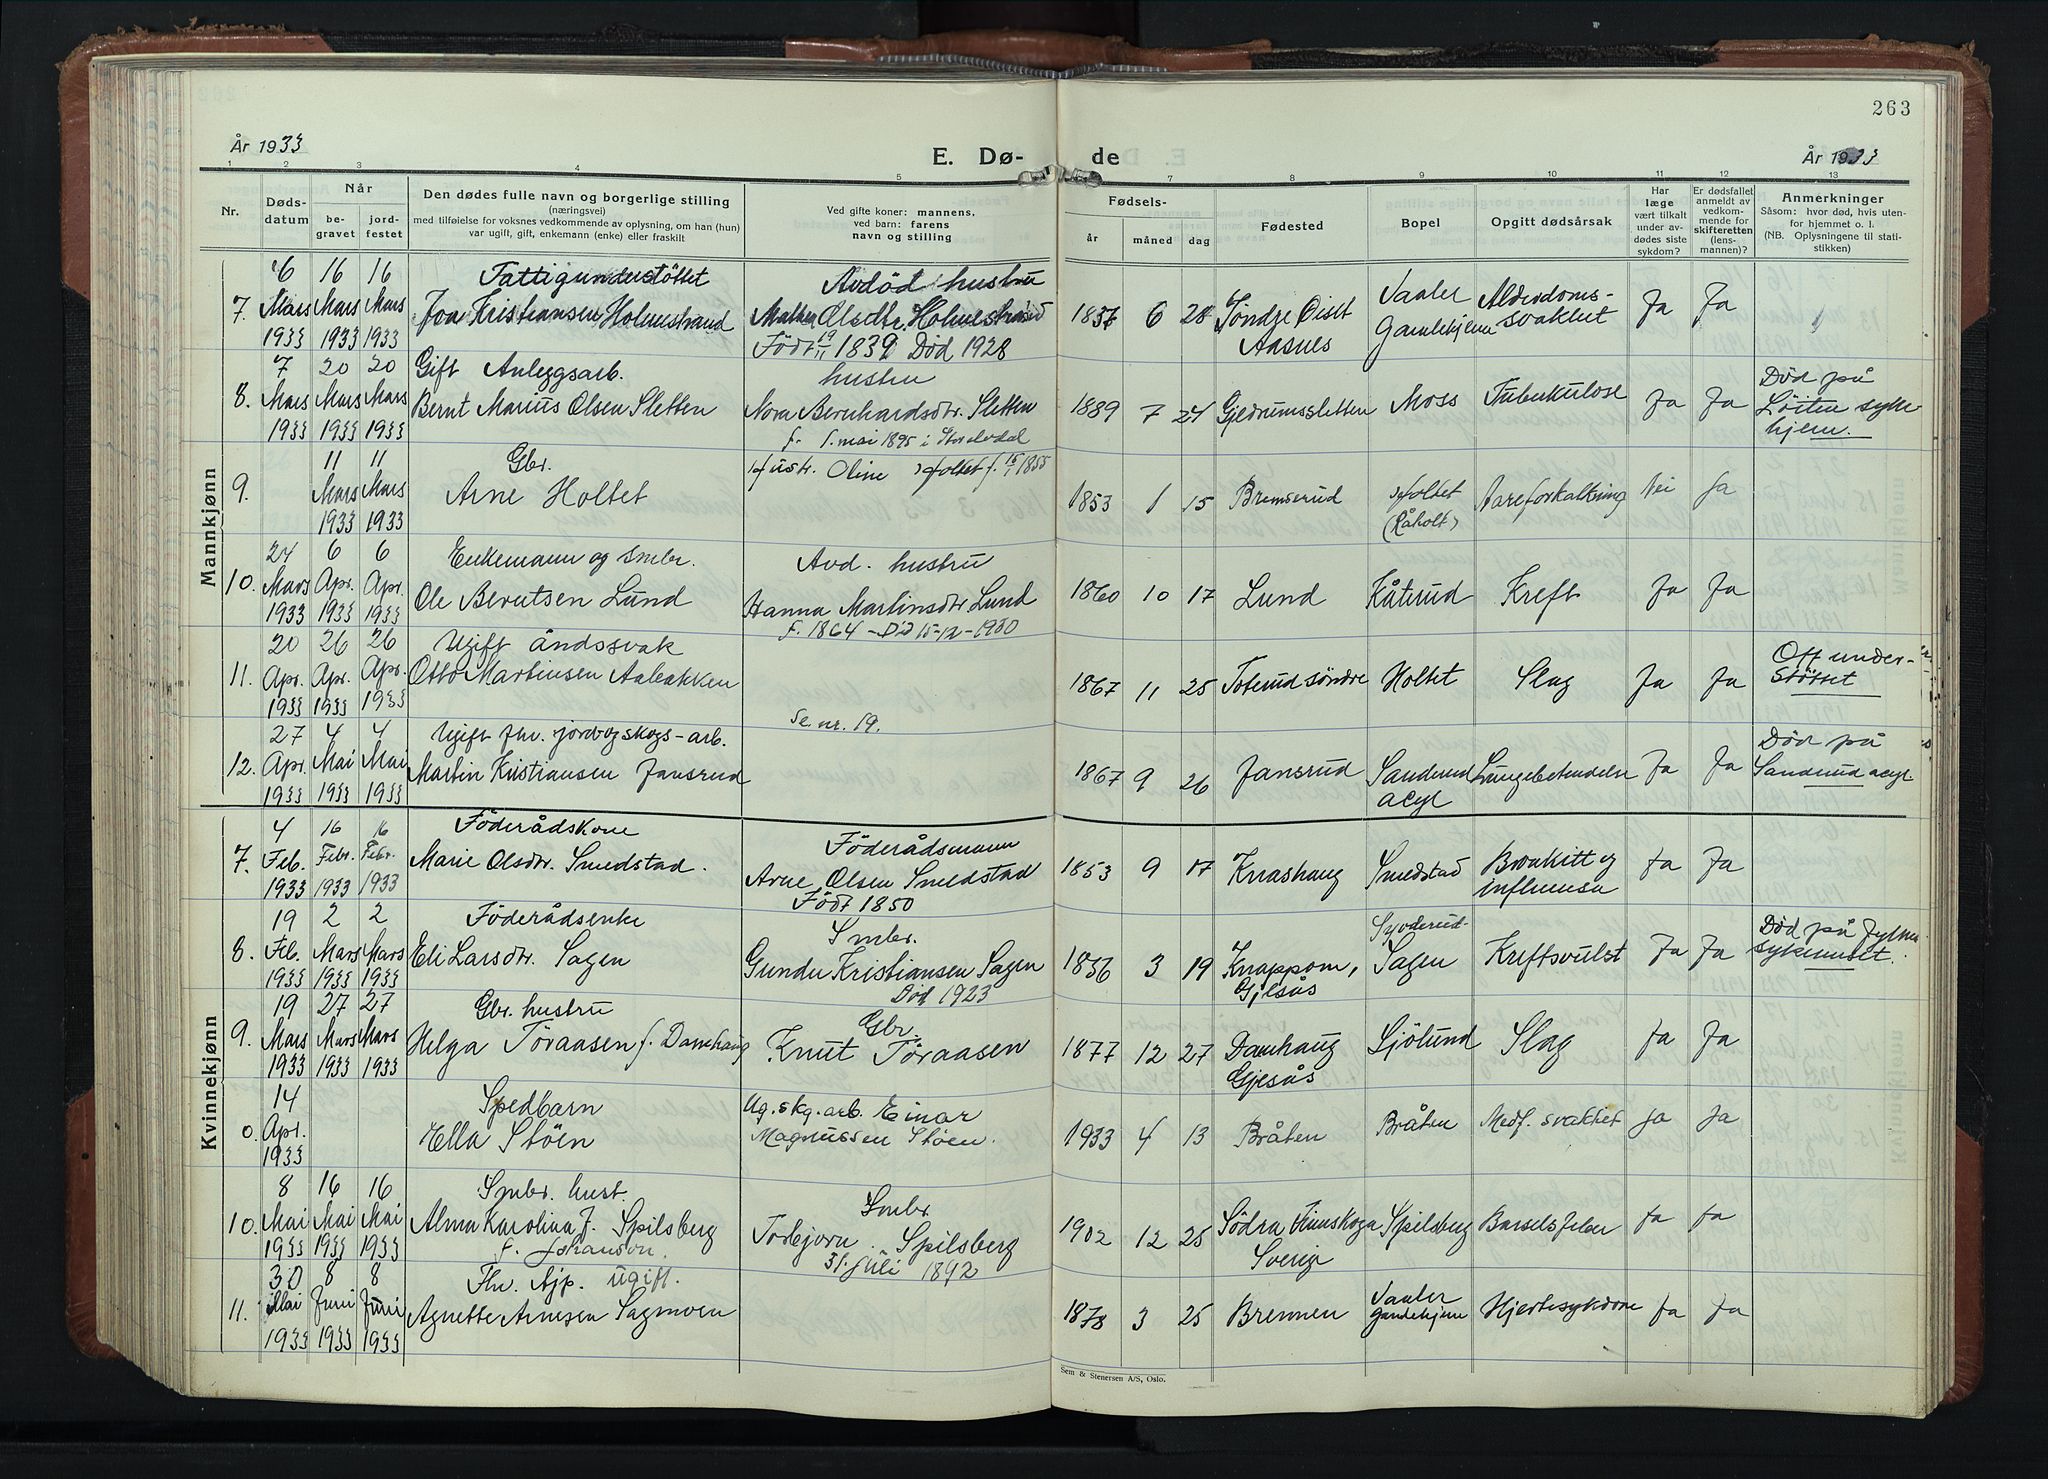 263
År 1933
E. Dø-
de
År 1933
1 2 3 4 5 7 8 9 10 11 12 13
Nr.
Døds-
datum
Når
be-
gravet
jord-
festet
Den dødes fulle navn og borgerlige stilling
(næringsvei)
med tilføielse for voksnes vedkommende av oplysning, om han (hun)
var ugift, gift, enkemann (enke) eller fraskilt
Ved gifte koner: mannens,
ved barn: farens
navn og stilling
Fødsels-
år måned dag
Fødested
Bopel
Opgitt dødsårsak
Har
læge
vært tilkalt
under av-
dødes siste
sykdom?
Er dødsfallet
anmeldt av
vedkom-
mende for
skifteretten
(lens-
mannen)?
Anmerkninger
Såsom: hvor død, hvis uten-
for hjemmet o. l.
(NB. Oplysningene til stati-
stikken)
Mannkjønn
6 16 16 Fattigunderstøttet Avdød hustru
7. Mars Mars Mars Kristiansen Holmestrand Olsdtr. Holmestrand 1837 6 28 Søndre Öislt Vaaler Alderdoms- Ja Ja
1933 1933 1933 Født 19/11 1839 Død 1928 Aasnes Gamlehjem svakhet
7 20 20 Gift Anleggsarb. hustru
8. Mars Mars Mars Bernt Marius Olsen Sletten Nora Bernhardsdtr. Sletten 1889 7 24 Gjedrumssletten Moss Tuberkulose Ja Ja Død på
1933 1933 1933 f. 1. mai 1895 i Storelvdal Löiten syke-
hjem.
11 11 Gbr. Hustr. Oline Holtet f. 15/1 1855
9. Mars Mars Arne Holtet 1853 1 15 Bremserud Holtet Aareforkalkning Nei Ja
1933 1933 (Råholt)
24 6 6 Enkemann og smbr. Avd. hustru
10. Mars Apr. Apr. Ole Berntsen Lund Hanna Martinsdtr Lund 1860 10 17 Lund Kåterud Kreft Ja Ja
1933 1933 1933 f. 1864 - Død 15-12-1930
20 26 26 Ugift Åndssvak
11. Apr. Apr. Apr. Otto Martinsen Aabakken 1867 11 25 Toterud søndre Holtet Slag Ja Ja Off under-
1933 1933 1933 støttet
Se nr. 19.
27 4 4 Ugift fhv. jord og skogs-arb.
12. Apr. Mai Mai Martin Kristiansen Jansrud 1867 9 26 Jansrud Sanderud Lungebetendelse Ja Ja Død på
1933 1933 1933 acyl Sandrud acyl.
Kvinnekjønn
4 16 16 Föderådskone Föderådsmann
7. Feb. Febr. Febr. Marie Olsdtr. Smedstad. Arne Olsen Smedstad 1853 9 17 Knashaug Smedstad Bronkitt og Ja Ja
1933 1933 1933 Født 1850 influensa
19 2 2 Föderådsenke Smbr.
8. Feb. Mars Mars Eli Larsdtr. Sagen Gunder Kristiansen Sagen 1856 3 19 Knappom, Syverud- Kreftsvulst Ja Ja Død på Fylkes-
1933 1933 1933 Død 1923 Gjesås Sagen sykehuset.
19 27 27 Gbr. hustru Gbr.
9. Mars Mars Mars Helga Töraasen f. Damhaug Knut Töraasen 1877 12 27 Damhaug Sjölund Slag Ja Ja
1933 1933 1933 Gjesås
14 Spedbarn Ug. skg. arb. Einar
0 Apr. Ella Støen Magnussen Støen. 1933 4 13 Bråten Bråten Medf. svakhet Ja Ja
1933
8 16 16 Smbr. hust. Smbr
10. Mai Mai Mai Alma Karolina J. Spilsberg Torbjørn Spilsberg 1902 12 25 Södra Finnskoga Spilsberg Barselsfeber Ja Ja
1933 1933 1933 f. Johanson. 31. juli 1892 Sverige
30 8 8 Fhv. ugift.
11. Mai Juni Juni Agnette Arnesen Sagmoen 1878 3 25 Brennen Vaaler Hjertesykdom Ja Ja
1933 1933 1933 gamlehjem
Sem & Stenersen A/S, Oslo.